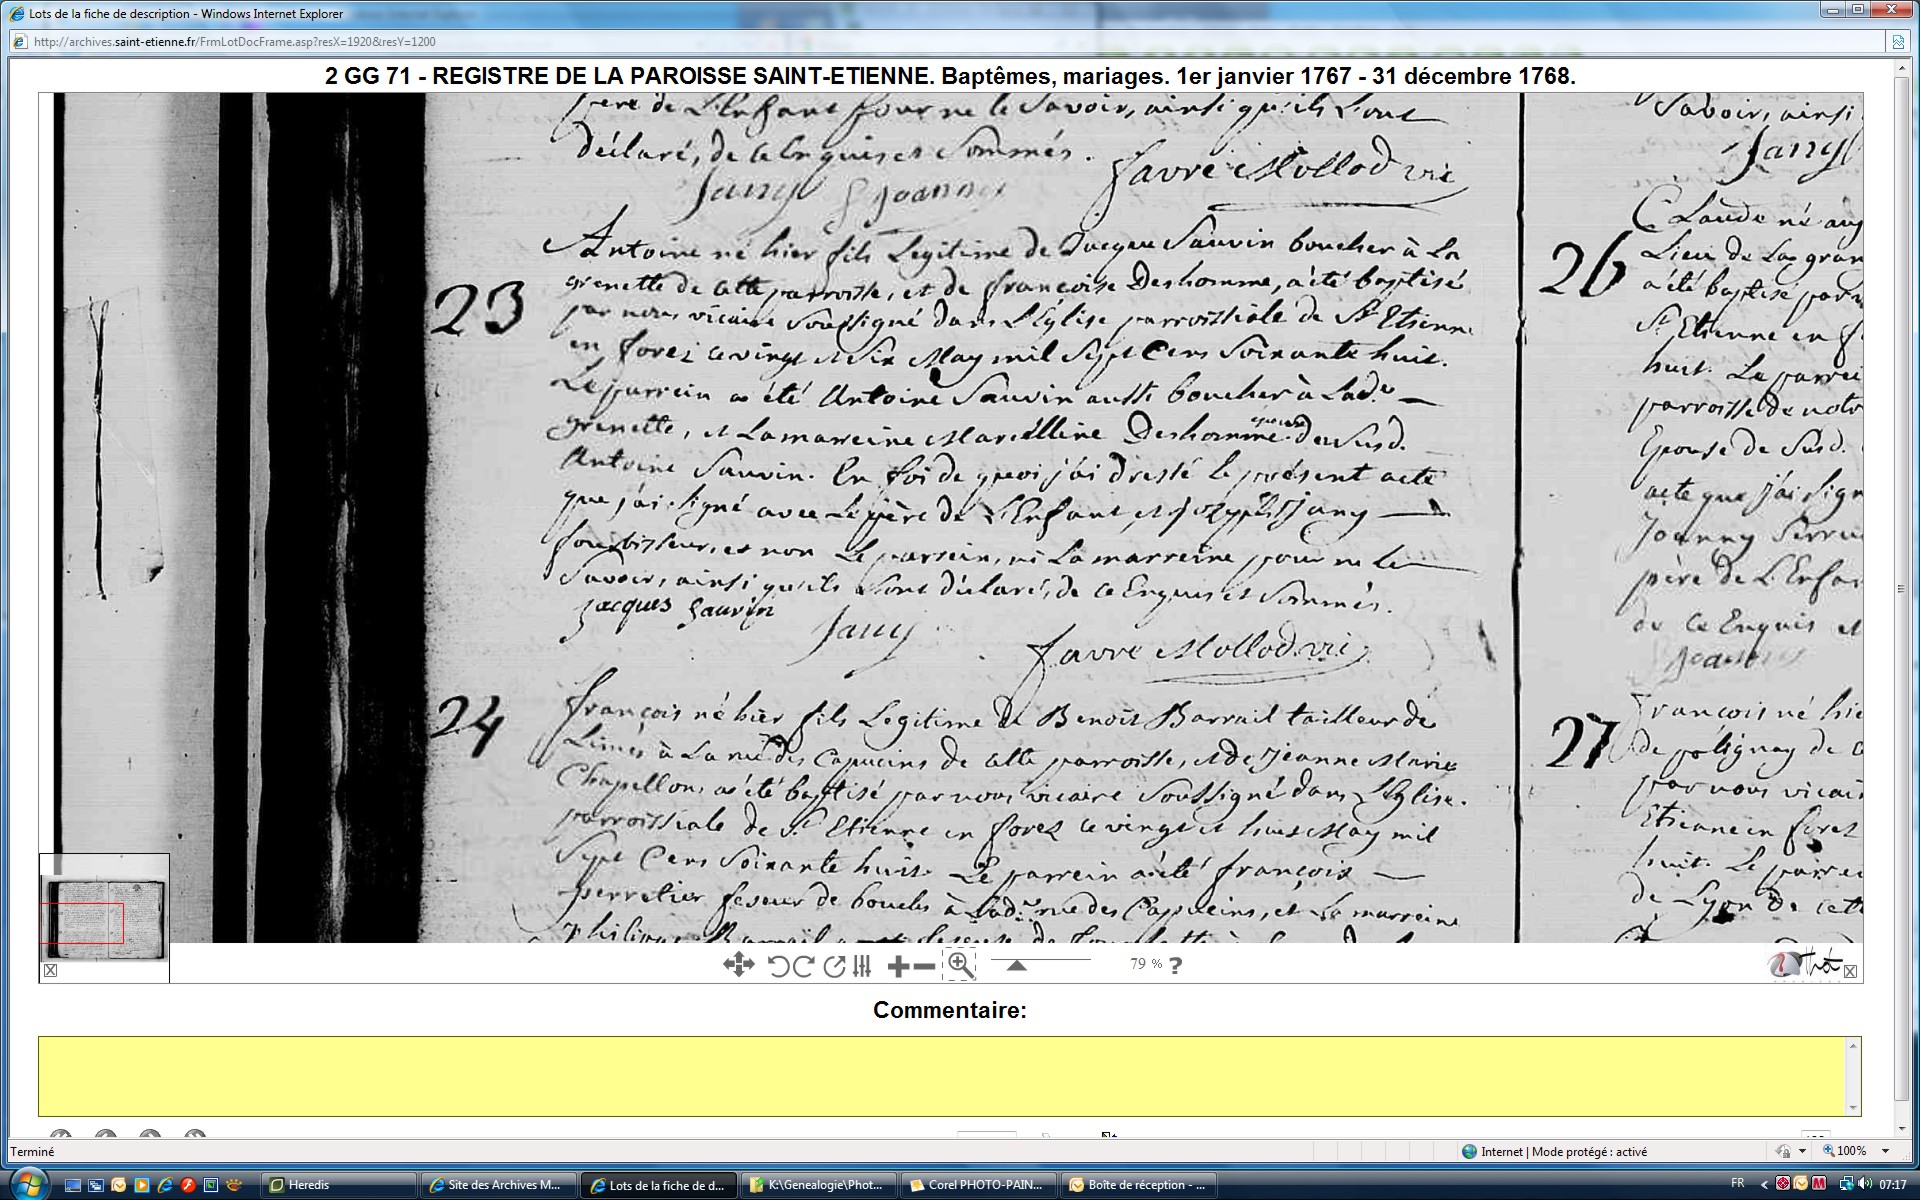 Lots de la fiche de description - Windows Internet Explorer
http://archives.saint-etienne.fr/FrmLotDocFrame.asp?resX=1920&resY=1200
2 GG 71 - REGISTRE DE LA PAROISSE SAINT-ETIENNE. Baptêmes, mariages. 1er janvier 1767 - 31 décembre 1768.
père de L'Enfant pour ne le Savoir, ainsi qu'ils L'ont
déclaré, de ce Enquis et Sommés.
Jany Joanny Favre Mollod vic
23
Antoine né hier fils Legitime de Jacque Sauvin boucher à La
grenette de cette parroisse, et de françoise Deshomme, a été baptisé
par nous vicaire Soussigné dans L'Eglise parroissiale de St Etienne
en forez ce vingt et Six May mil Sept Cens Soixante huit.
Le parrein a été Antoine Sauvin aussi boucher à Lad.e
grenette, et La marreine Marcélline Deshomme épouse du Susd.
Antoine Sauvin. En foi de quoi j'ai dressé le présent acte
que j'ai signé avec Le père de L'Enfant et Jozeph Jany
fourbisseur, et non Le parrein, ni La marreine pour ne le
Savoir, ainsi qu'ils L'ont déclaré, de ce Enquis et Sommés.
jacques Sauvin
Jany
Favre Mollod vic
24
françois né hier fils Legitime de Benoit Barrail tailleur de
Limes à La rue des Capucins de cette parroisse, et de Jeanne Marie
Chapellon, a été baptisé par nous vicaire Soussigné dans L'Eglise
parroissiale de St Etienne en forez ce vingt et huit May mil
Sept Cens Soixante huit. Le parrein a été françois
perretier feseur de boucles à Lad.e rue des Capucins, et La marreine
Savoir, ainsi
Jany
26
Claude né
Lieu de La gran
a été baptisé par
St Etienne en f
huit. Le parrei
parroisse de notr
Epouse de Susd.
acte que j'ai Sign
Joanny Serru
père de L'Enfan
de ce Enquis et
Joanny
27
françois né hie
de polignay de
par nous vicai
Etienne en forez
huit. Le parrei
de Lyon de cett
79 % ?
Commentaire:
Terminé
Internet | Mode protégé : activé
100%
Heredis
Site des Archives M...
Lots de la fiche de d...
K:\Genealogie\Phot...
Corel PHOTO-PAIN...
Boîte de réception - ...
FR
07:17